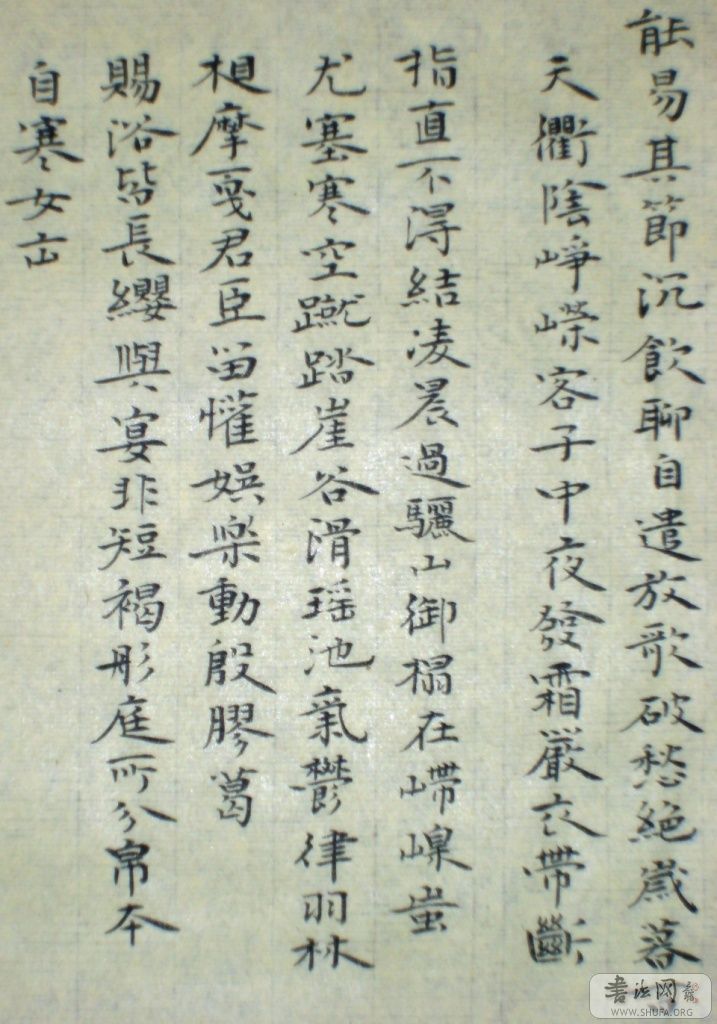 能易其節沉飲聊自遣放歌破愁絕歲暮
天衢陰崢嶸客子中夜發霜嚴衣帶斷
指直不得結凌晨過驪山御榻在嵽嵲蚩
尤塞寒空蹴踏崖谷滑瑤池氣鬱律羽林
相摩戛君臣留懽娛樂動殷膠葛
賜浴皆長纓與宴非短褐彤庭所分帛本
自寒女出
书法网
WWW.SHUFA.ORG